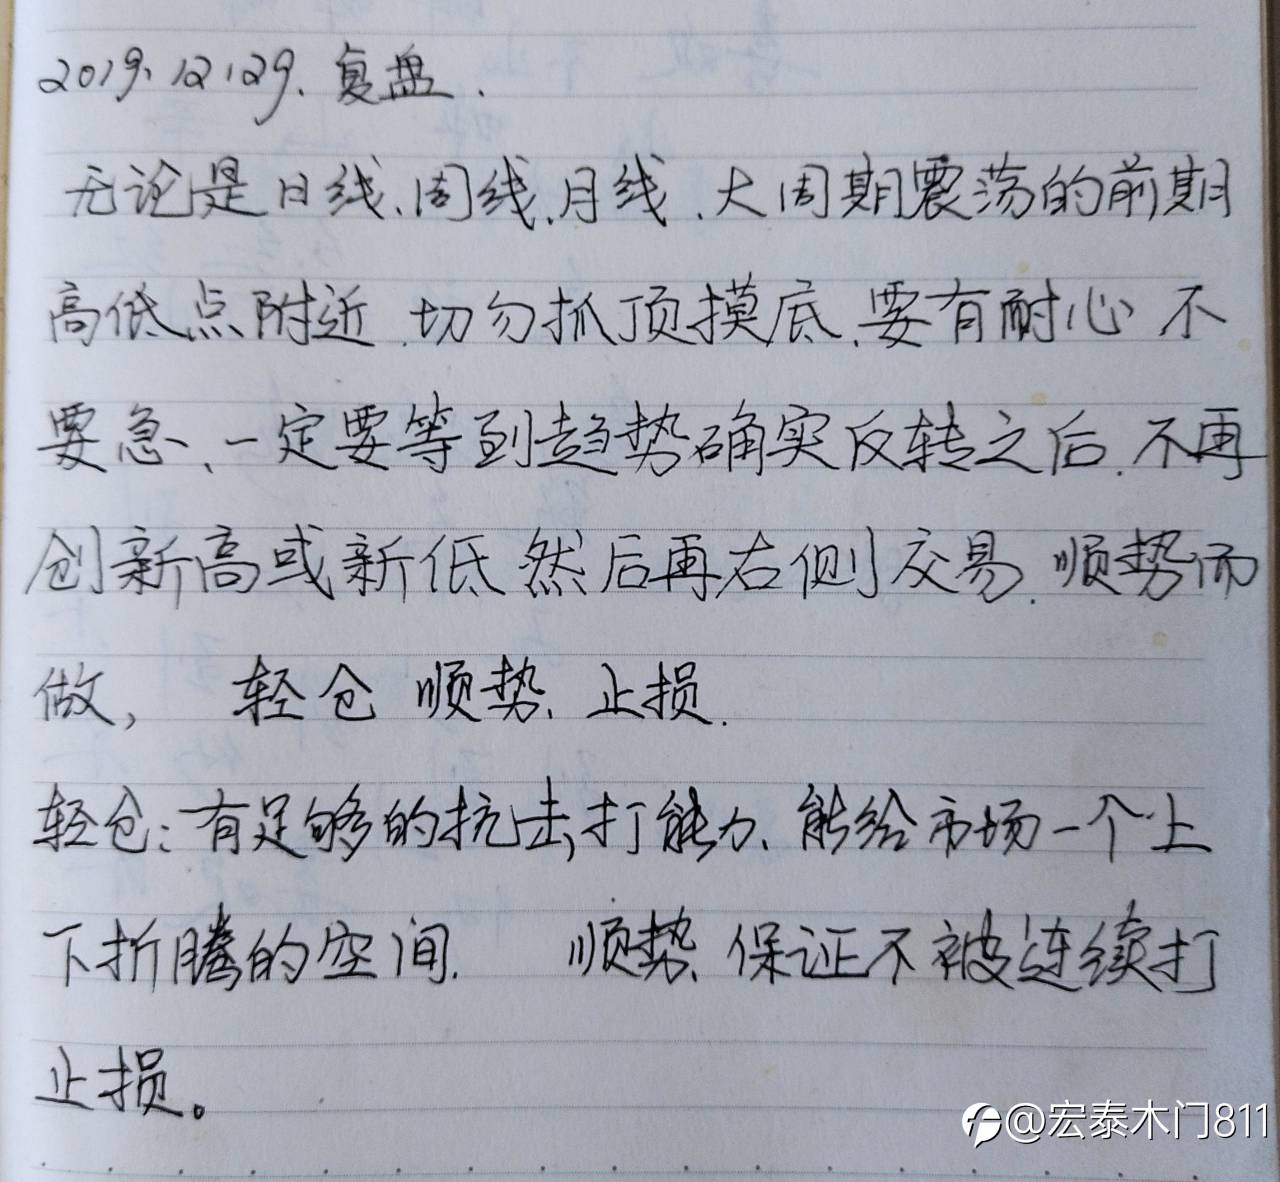 2019.12.29.复盘.
无论是日线、周线、月线、大周期震荡的前期
高低点附近、切勿抓顶摸底、要有耐心 不
要急、一定要等到趋势确实反转之后、不再
创新高或新低 然后再右侧交易、顺势而
做, 轻仓 顺势、止损.
轻仓:有足够的抗击打能力、能给市场一个上
下折腾的空间. 顺势、保证不被连续打
止损。
@宏泰木门811